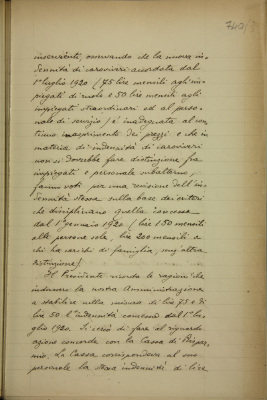 742
inservienti, osservando che la nuova in-
dennità di caroviveri accordata dal
1° luglio 1920 (75 lire mensili agli im-
piegati di ruolo e 50 lire mensili agli
impiegati straordinari ed al perso-
nale di servizio) è inadeguata al con-
tinuo inasprimento dei prezzi e che in
materia di indennità di caroviveri
non si dovrebbe fare distinzione fra
impiegati e personale subalterno,
fanno voti per una revisione dell'in-
dennità stessa sulla base dei criteri
che disciplinano quella concessa
dal 1° gennaio 1920. (lire 150 mensili
alle persone sole, lire 200 mensili a
chi ha carichi di famiglia, senz'altra
distinzione).
Il Presidente ricorda le ragioni che
indussero la nostra Amministrazione
a stabilire nella misura di lire 75 e di
lire 50 l'indennità concessa dal 1° lu-
glio 1920. Si cercò di fare al riguardo
azione concorde con la Cassa di Rispar-
mio. La Cassa corrispondeva al suo
personale la stessa indennità di lire